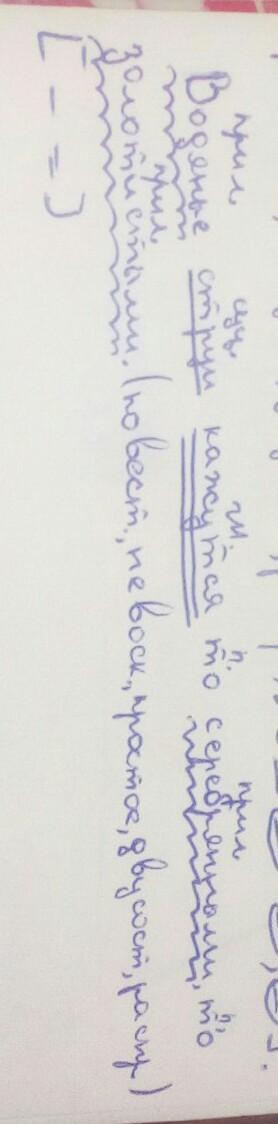 прил сущ. гл. п. прил п.
Водяные струи кажутся то серебряными, то
прил
золотистыми. (повест., невоск., простое, двусост, распр)
[ - = ]